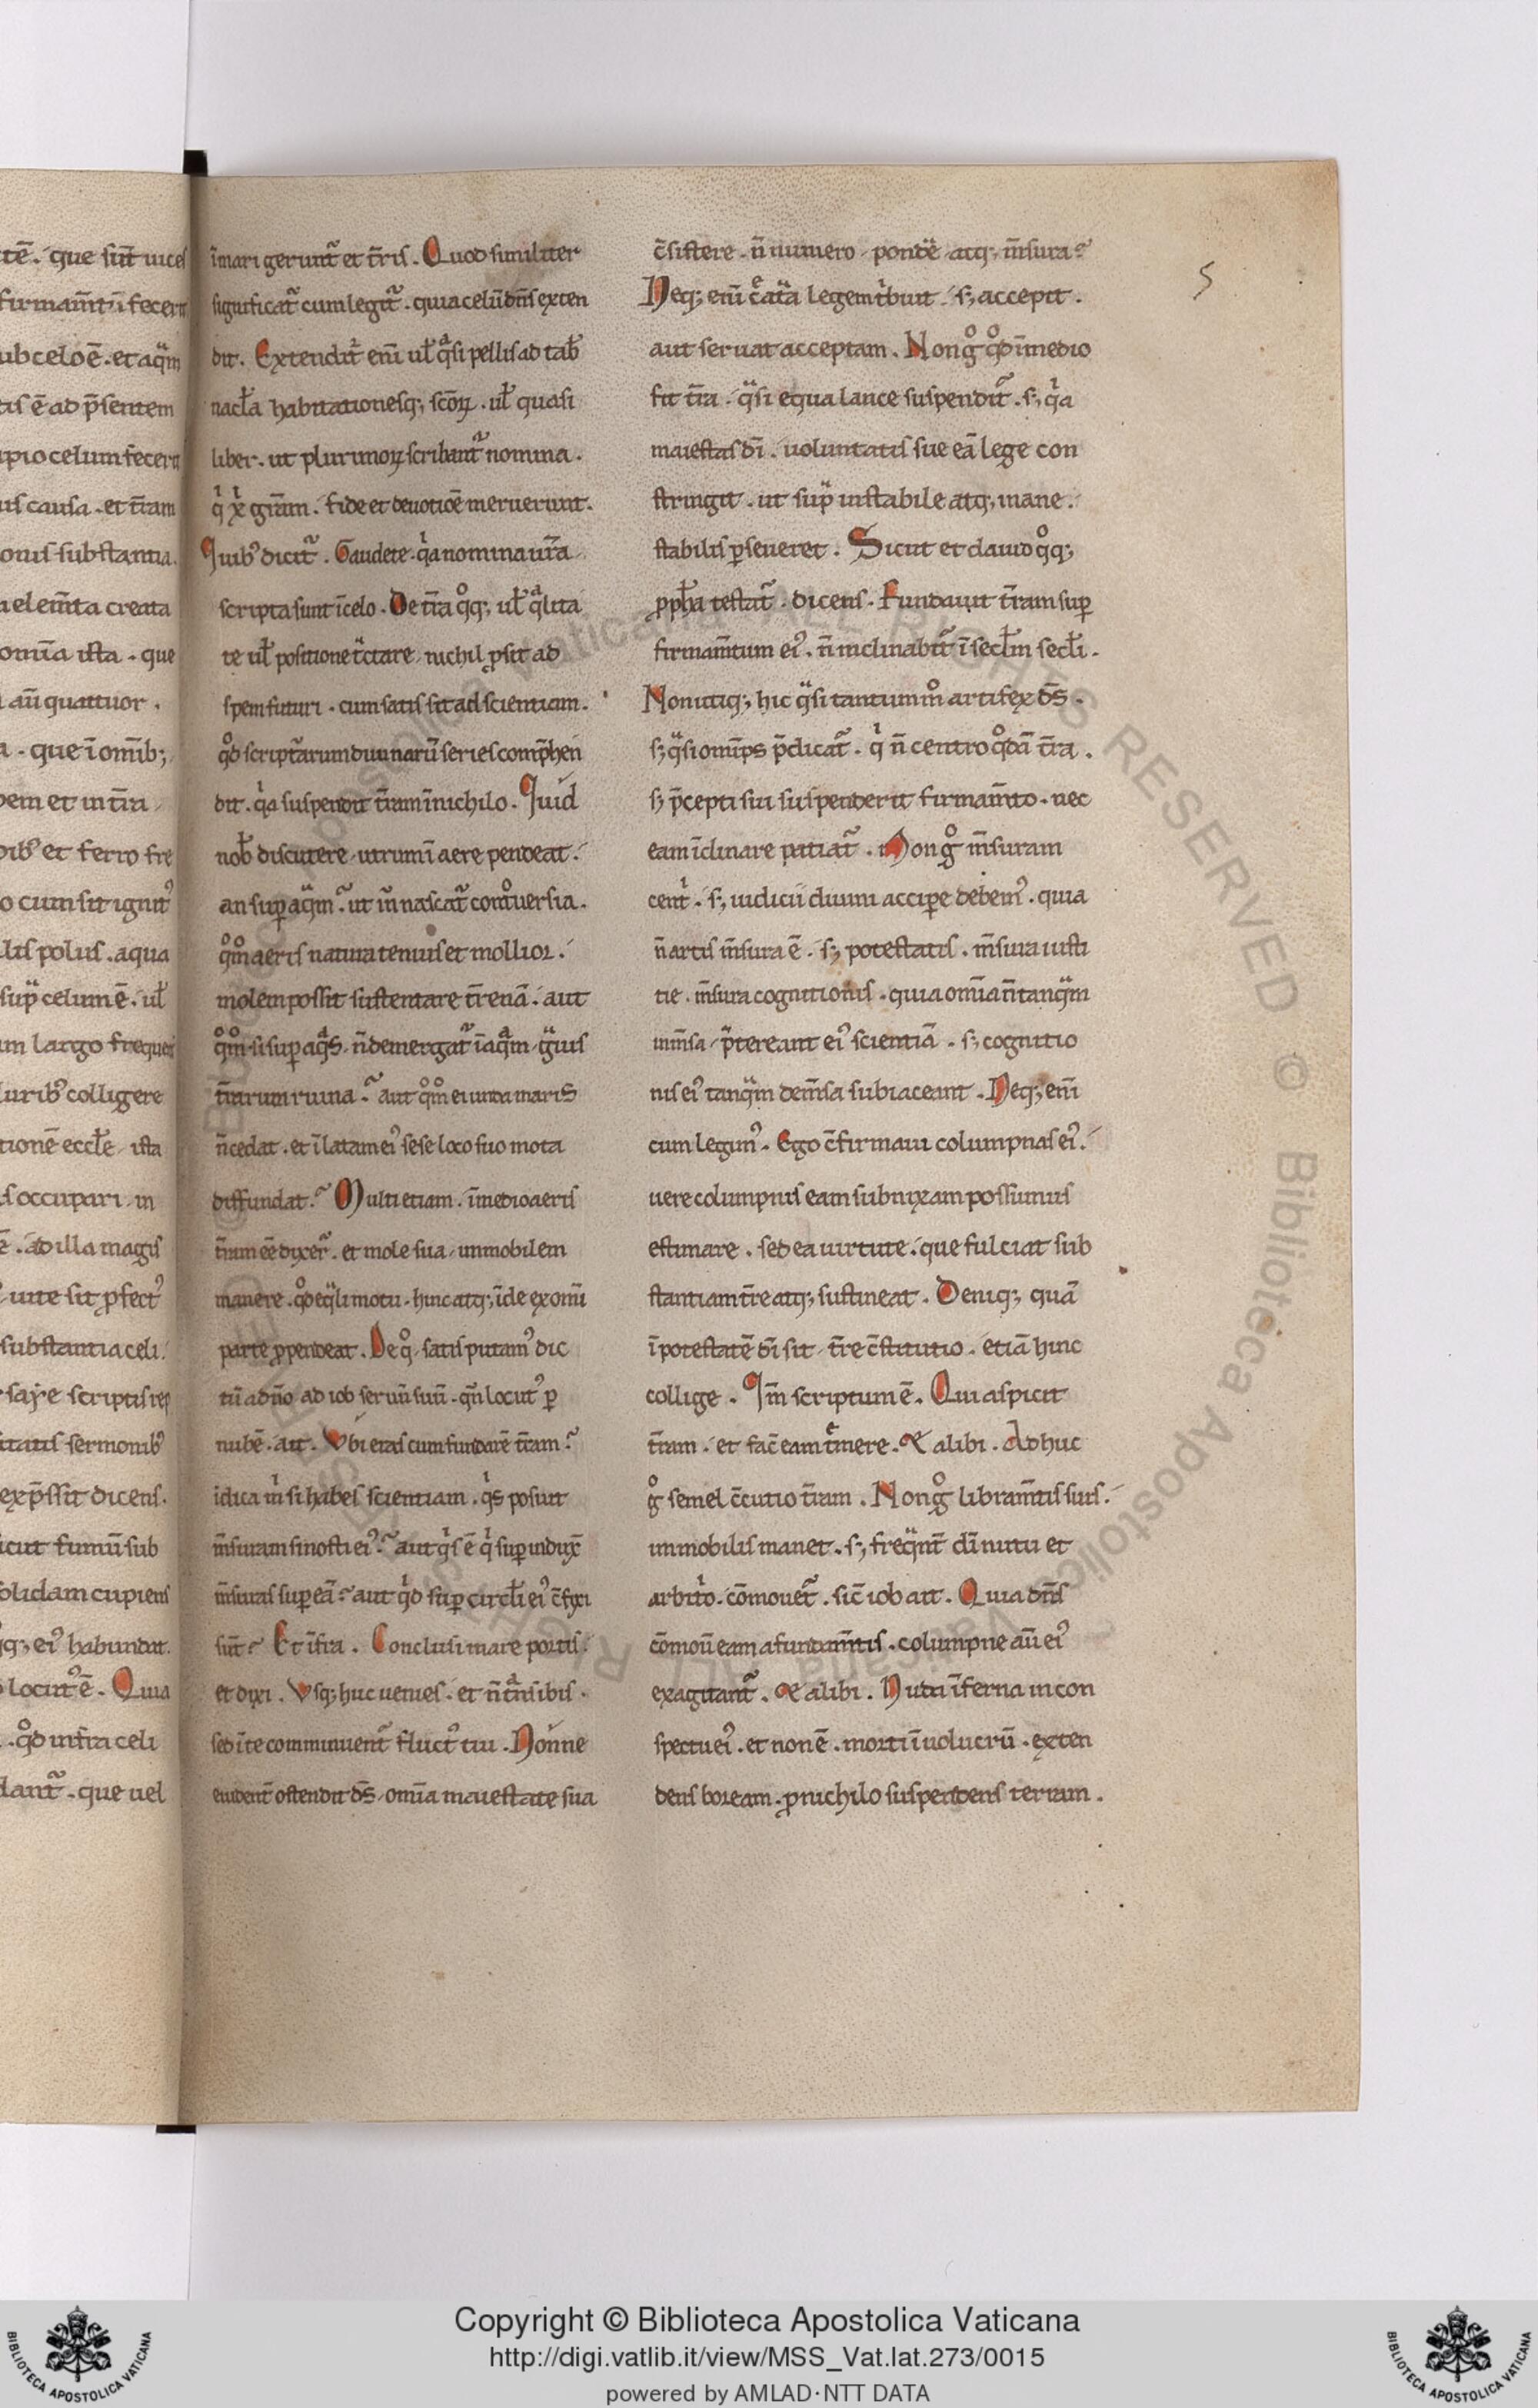 tē. que sūt uices
firmam̄tū fecerit
ub celo ē. et aqͣm
tis ē ad p̄sentem
ipio celum fecerit
us causa. et tr̄am
onis substantia.
a elem̄ta creata
om̄ia ista. que
aū quattuor.
a. que ī om̄ib;
pem et in tr̄a
ibꝰ et ferro fre
o cum sit ignitꝰ
lis polus. aqua
supͣ celum ē. ul̄
m largo
luribꝰ colligere
tionē eccl̄e ista
s occupari in
ē. ad illa magis
uite sit ꝑfectꝰ
substantia celi.
saẏe scriptis
itatis sermonibꝰ
exp̄ssit dicens.
icut fumū sub
olidam cupiens
qq; eiꝰ habundat.
locutꝰ ē. Quia
. qͦd infra celi
dant᷑. que uel
ī mari gerunt᷑ et tr̄is. Quod similiter
significat᷑ cum legit᷑. quia celū dn̄s exten
dit. Extendit᷑ enī ul̄ qͣsi pellis ad tab̄
nacl̄a habitationesq; sc̄oꝝ. ul̄ quasi
liber. ut plurimoꝝ scribant᷑ nomina.
qⁱ xⁱ gr̄am. fide et deuotiōe meruerunt.
Quibꝰ dicit᷑. Gaudete. qⁱa nomina ur̄a
scripta sunt ī celo. De tr̄a qͦq; ul̄ qͣlita
te ul̄ positione tͣctare, nichil ꝓsit ad
spem futuri. cum satis sit ad scientiam.
qͦd scriptᷓarum diuinarū series comp̄hen
dit. qⁱa suspendit tr̄am ī nichilo. Quid
nob̄ discutere, utrum ī aere pendeat.
an suꝑ aqͣm? ut īn nascat᷑ contͦuersia.
qͦmͦ aeris natura tenuis et mollior.
molem possit sustentare tr̄enā. aut
qͦmͦ si suꝑ aqͣs. n̄ demergat᷑ ī aqͣm gͣuis
tr̄arum ruina? aut qͦmͦ ei unda maris
n̄ cedat. et ī latam eiꝰ sese loco suo mota
diffundat? Multi etiam. ī medio aeris
tr̄am eē dixer̄. et mole sua, immobilem
manere. qͦd eqͣli motu. hinc atq; īde ex omī
parte ꝓpendeat. De qͦ, satis putamꝰ dic
tū a dn̄o ad iob seruū suū. qn̄ locutꝰ ꝑ
nubē. ait. Vbi eras cum fundarē tr̄am?
idica mⁱ si habes scientiam. qⁱs posuit
m̄suram si nosti eiꝰ? aut qⁱs ē qⁱ suꝑindux̄
m̄suras suꝑ eā? aut qⁱd suꝑ circl̄i eiꝰ c̄fixi
sūt? Et īfra. Conclusi mare portis.
et dixi. Vsq; huc uenies. et n̄ tͣnsibis.
sed ī te comminuent᷑ fluctꝰ tui. Nonne
euident̄ ostendit ds̄, om̄ia maiestate sua
c̄sistere. n̄ numero, pondē atq; m̄sura?
Neq; enī creatᷓa legem tⁱbuit. s; accepit.
aut seruat acceptam. Non gͦ qͦd ī medio
sit tr̄a. qͣsi equa lance suspendit᷑. s; qⁱa
maiestas dī. uoluntatis sue eā lege con
stringit. ut supͣ instabile atq; inane.
stabilis ꝑseueret. Sicut et dauid qͦq;
ꝓph̄a testat᷑. dicens. Fundauit tr̄am suꝑ
firmam̄tum eiꝰ. n̄ inclinabit᷑ ī secl̄m secl̄i.
Non utiq; hic qͣsi tantummͦ artifex ds̄.
s; qͣsi om̄ps p̄dicat᷑. qⁱ n̄ centro qͦdā tr̄a.
s; p̄cepti sui suspenderit firmam̄to. nec
eam īclinare patiat᷑. Non gͦ m̄suram
centⁱ. s; iudicii diuini accipe debemꝰ. quia
n̄ artis m̄sura ē. s; potestatis. m̄sura iusti
tie. m̄sura cognitionis. quia om̄ia n̄ tanqͣm
inm̄sa, p̄tereant eiꝰ scientiā. s; cognitio
nis eiꝰ tanqͣm dem̄sa subiaceant. Neq; enī
cum legimꝰ. Ego c̄firmaui columpnas eiꝰ.
uere columpnis eam subnixam possumus
estimare. sed ea uirtute. que fulciat sub
stantiam tr̄e atq; sustineat. Deniq; quā
ī potestatē dī sit, tr̄e c̄stitutio. etiā hinc
collige. Im̄ scriptum ē. Qui aspicit
tr̄am. et fac̄ eam tͤmere. & alibi. Adhuc
gͦ semel c̄cutio tr̄am. Non gͦ libram̄tis suis.
immobilis manet. s; freqͣnt̄ dī nutu et
arbitⁱo. cōmouet᷑. sic̄ iob ait. Quia dn̄s
cōmoū eam a fundam̄tis. columpne aū eiꝰ
exagitant᷑. & alibi. Nuda īferna in con
spectu eiꝰ. et non ē. morti īuolucrū. exten
dens boream. ꝓ nichilo suspendens terram.
5
Copyright © Biblioteca Apostolica Vaticana
http://digi.vatlib.it/view/MSS_Vat.lat.273/0015
powered by AMLAD·NTT DATA
BIBLIOTECA APOSTOLICA VATICANA
BIBLIOTECA APOSTOLICA VATICANA